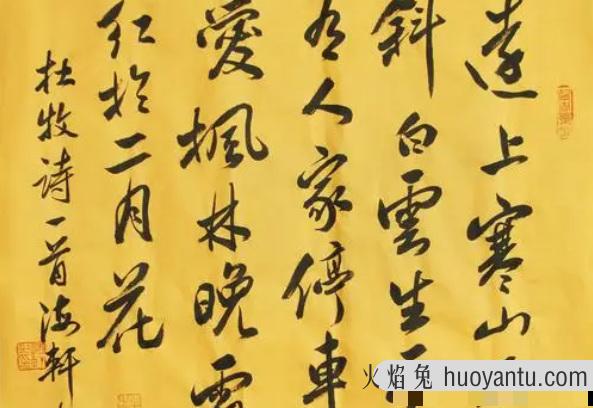 遠上寒山
斜白雲生
有人家停車
愛楓林晚霜
红於二月花
杜牧诗一首海軒
火焰兔 huoyantu.com